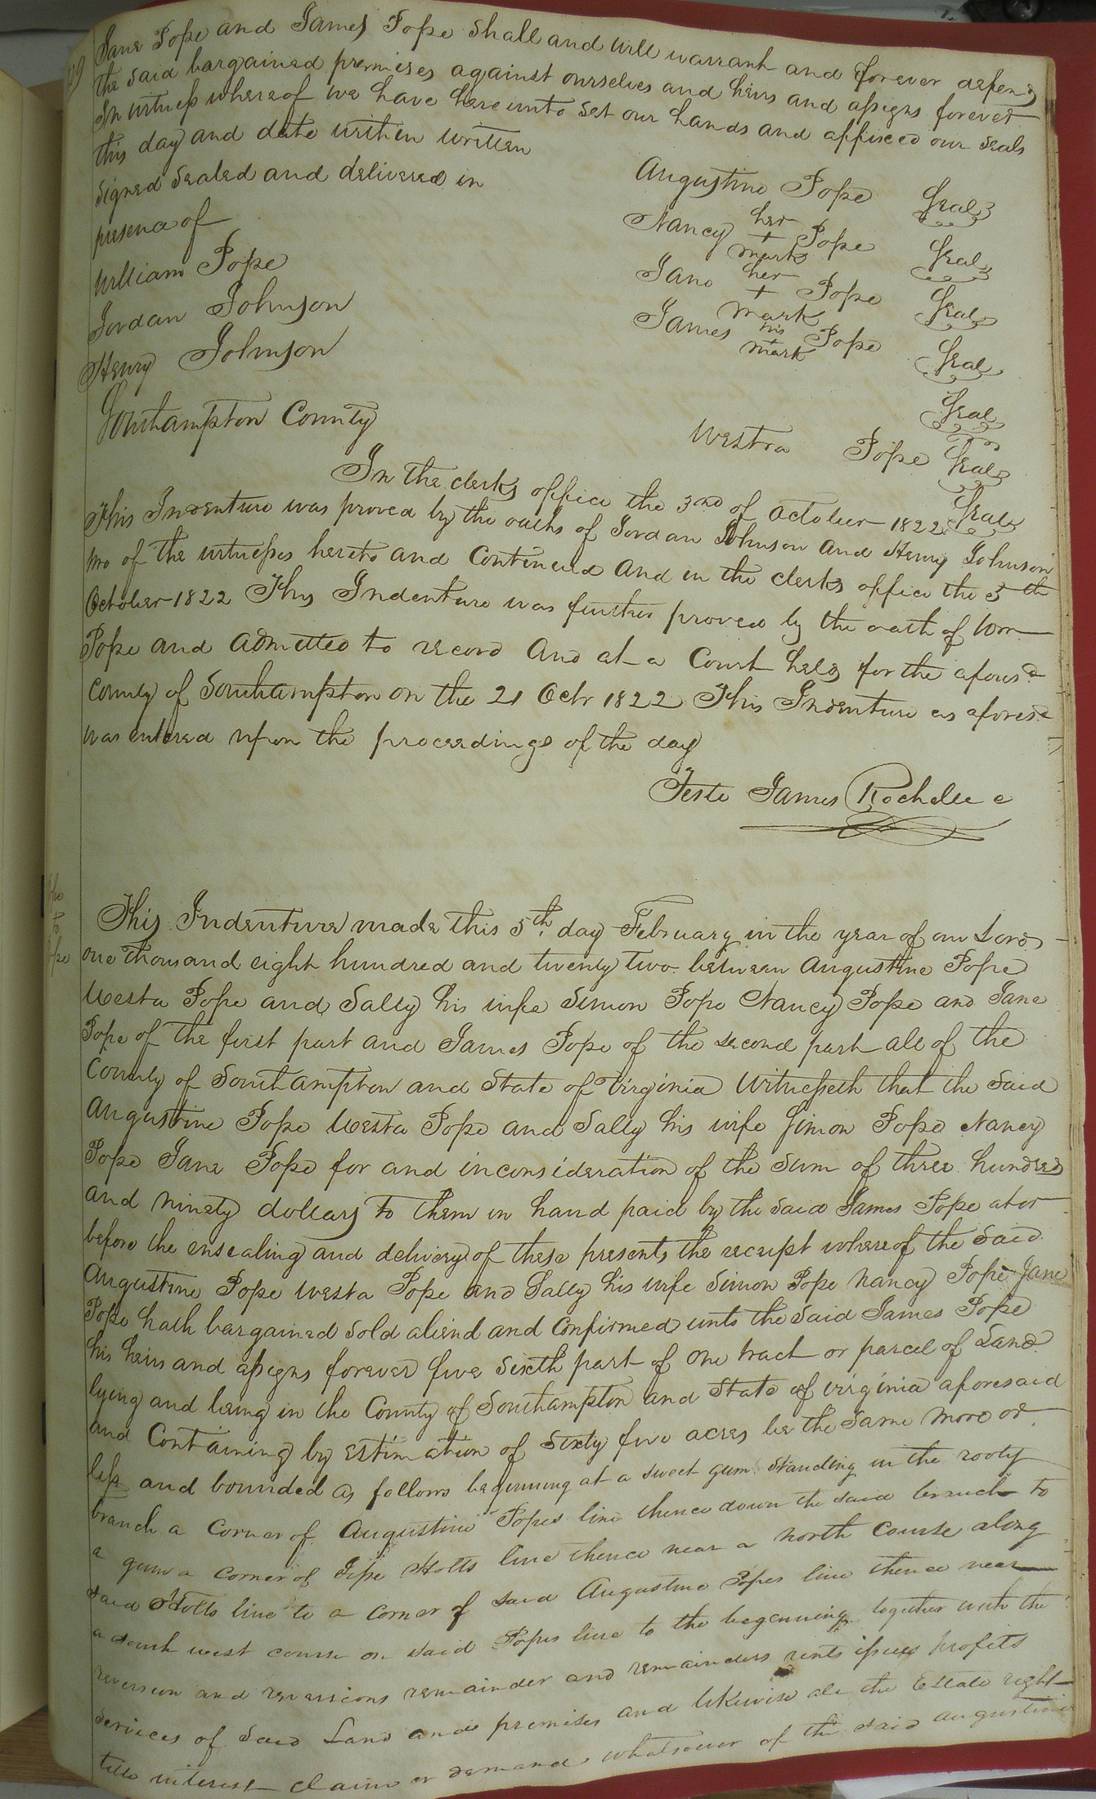 Jane Pope and James Pope Shall and will warrant and forever defend
the said bargained premises against ourselves and heirs and assigns forever
In witness whereof we have hereunto set our hands and affixed our seals
this day and date within written
Signed Sealed and delivered in
presence of
William Pope
Jordan Johnson
Henry Johnson
Augustine Pope Seal
Nancy her + mark Pope Seal
Jane her + mark Pope Seal
James his + mark Pope Seal
Seal
Westra Pope Seal
Seal
Southampton County
In the clerks office the 3rd of October 1822
This Indenture was proved by the oaths of Jordan Johnson and Henry Johnson
two of the witnesses hereto and Continued and in the clerks office the 5th
October 1822 This Indenture was further proved by the oath of Wm
Pope and admitted to record And at a Court held for the aforesd
County of Southampton on the 21 Octr 1822 This Indenture as aforesd
was entered upon the proceedings of the day
Teste James Rochelle c
This Indenture made this 5th day February in the year of our Lord
one thousand eight hundred and twenty two between Augustine Pope
Westa Pope and Sally his wife Simon Pope Nancy Pope and Jane
Pope of the first part and James Pope of the second part all of the
County of Southampton and State of Virginia Witnesseth that the Said
Augustine Pope Westa Pope and Sally his wife Simon Pope Nancy
Pope Jane Pope for and inconsideration of the Sum of three hundred
and ninety dollars to them in hand paid by the Said James Pope at or
before the ensealing and delivery of these presents the receipt whereof the Said
Augustine Pope Westa Pope and Sally his wife Simon Pope Nancy Pope Jane
Pope hath bargained Sold aliend and Confirmed unto the Said James Pope
his heirs and assigns forever five Sixth part of one tract or parcel of Land
lying and being in the County of Southampton and State of virginia aforesaid
and Containing by Estimation of Sixty five acres be the Same more or
less and bounded as follows beginning at a sweet gum standing in the rooty
branch a Corner of Augustine Popes line thence down the said branch to
a gum a Corner of Holts line thence near a north Course along
said Holts line to a Corner of said Augustine Popes line thence near
a south west course on said Popes line to the begenning together with the
reversion and reversions remainder and remainders rents issues profits
services of said Land and premises and likewise all the Estate right
title interest claim or demand whatsoever of the said Augustine